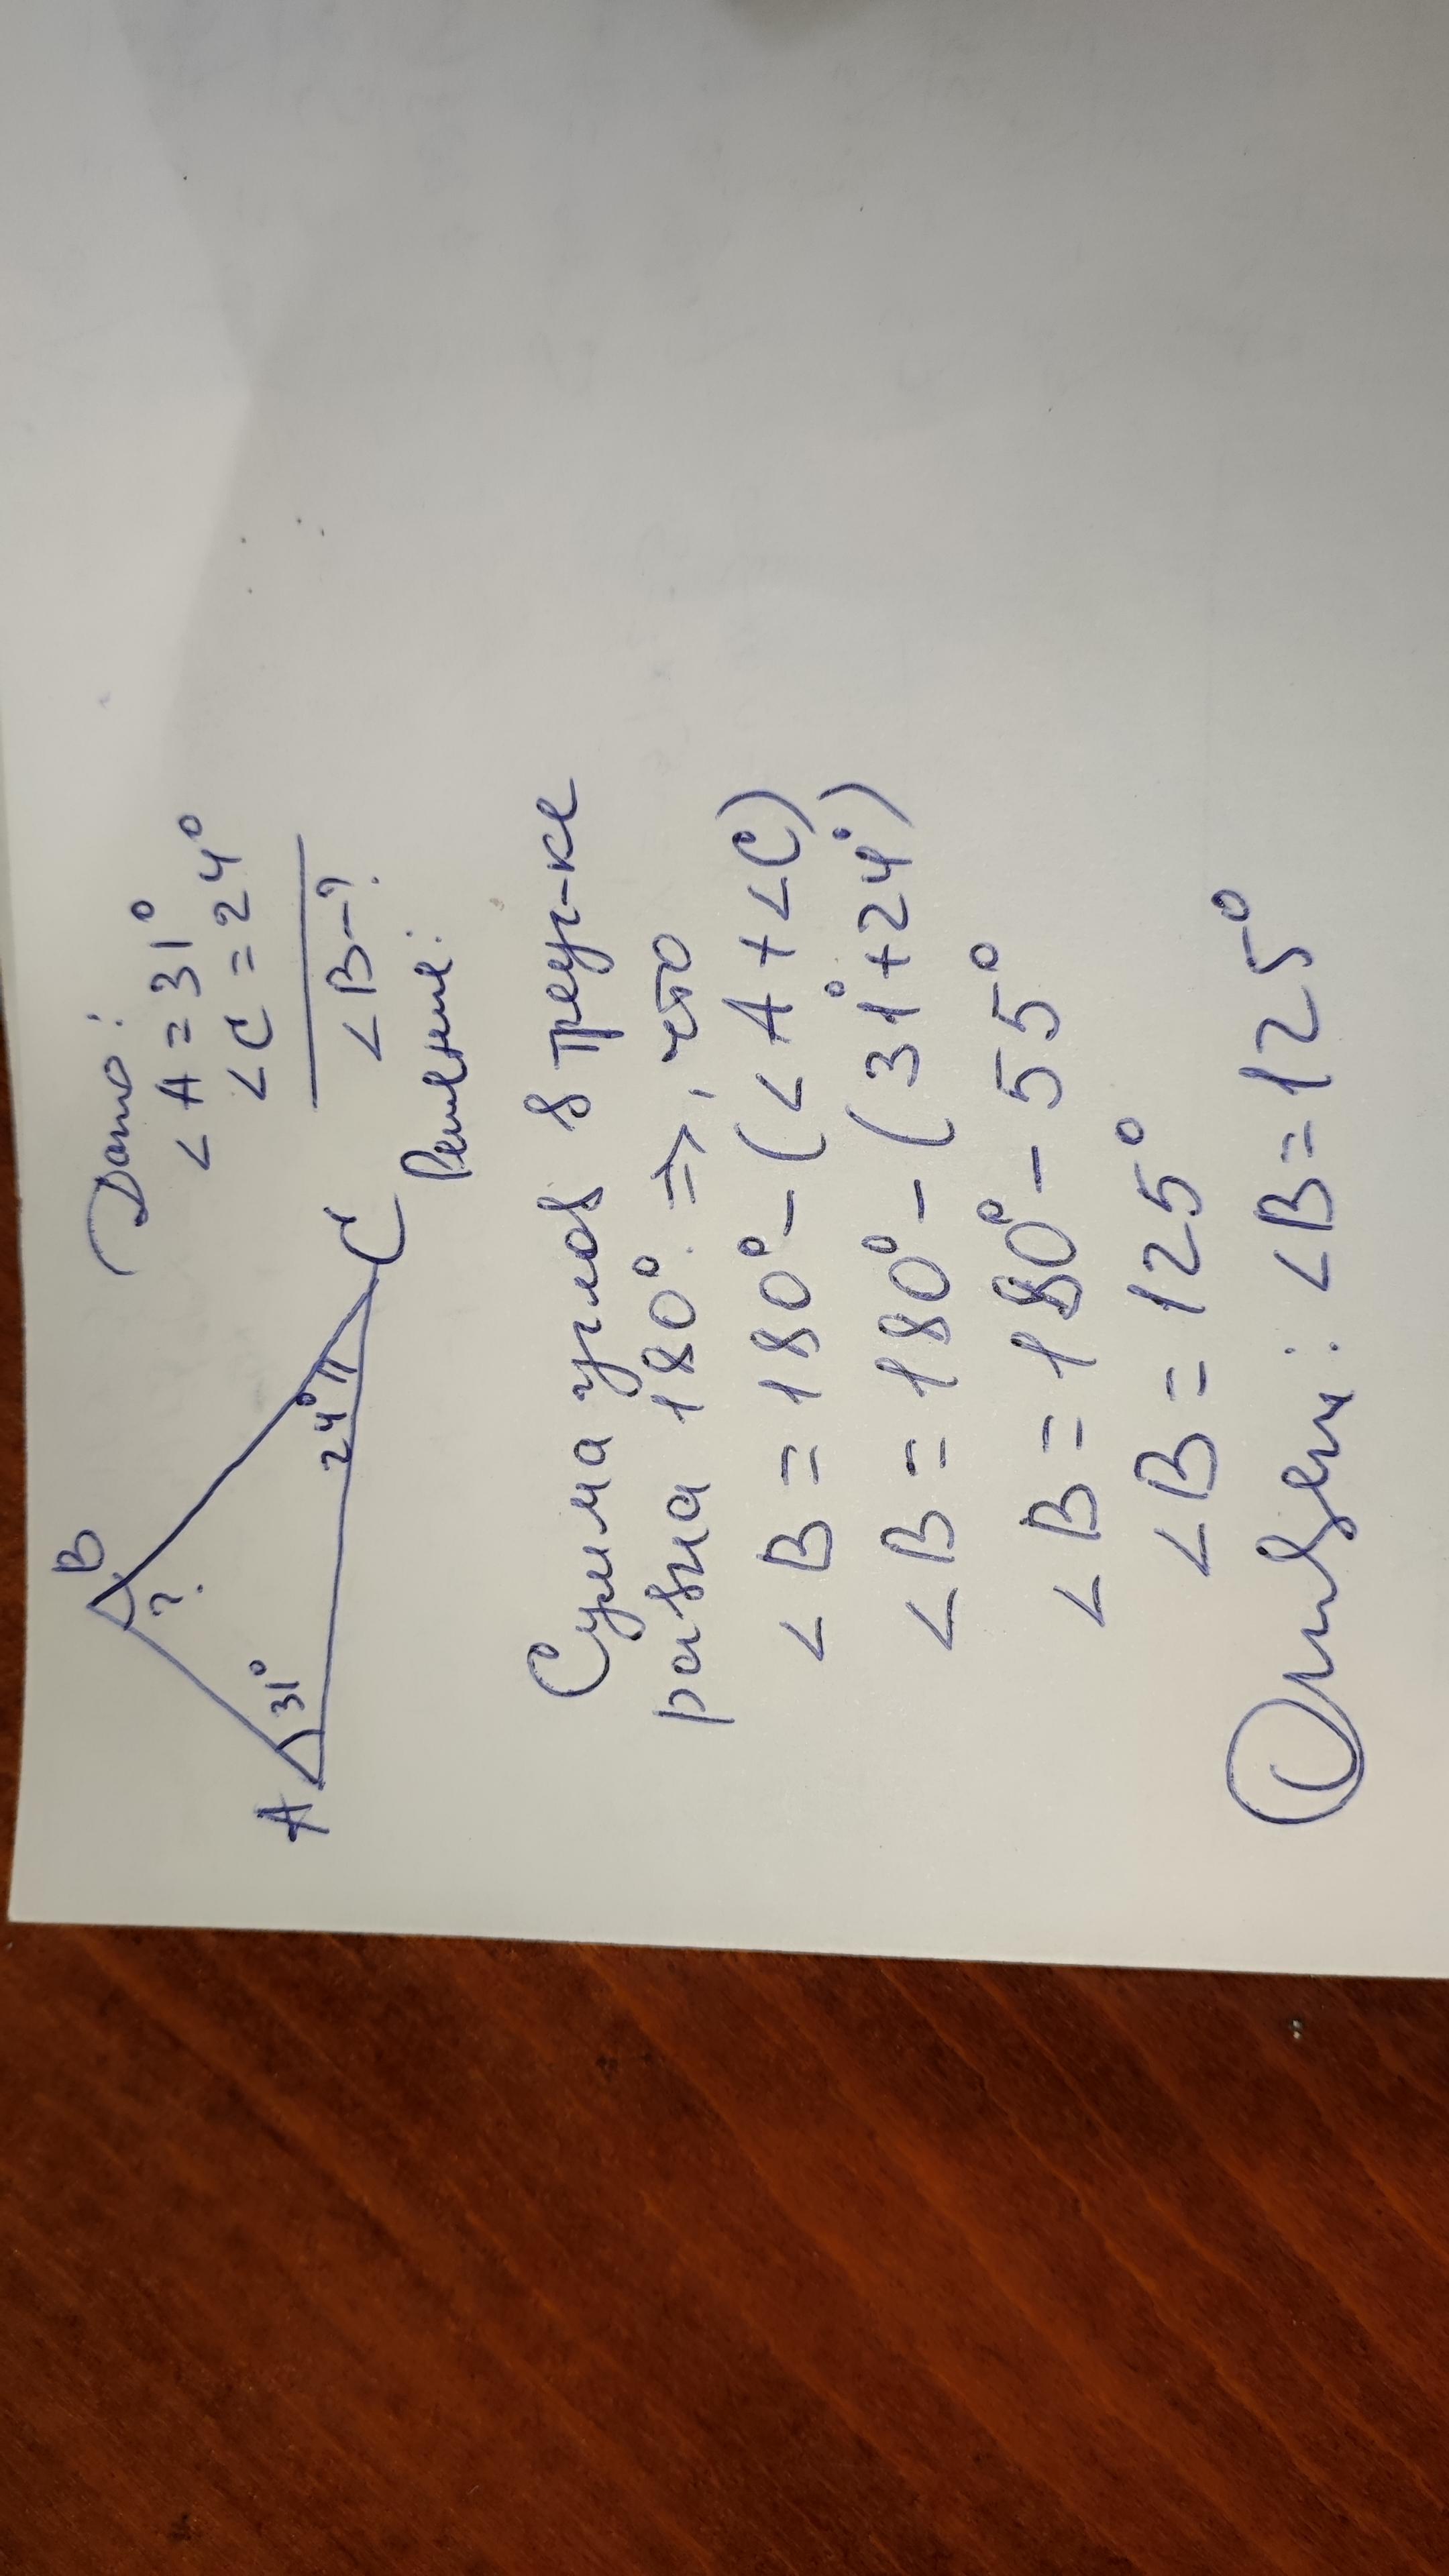 B
?
A
31°
24°
C
Дано:
∠A = 31°
∠C = 24°
∠B - ?
Решение:
Сумма углов в треуг-ке
равна 180° ⇒, что
∠B = 180° - (∠A + ∠C)
∠B = 180° - (31° + 24°)
∠B = 180° - 55°
∠B = 125°
Ответ: ∠B = 125°